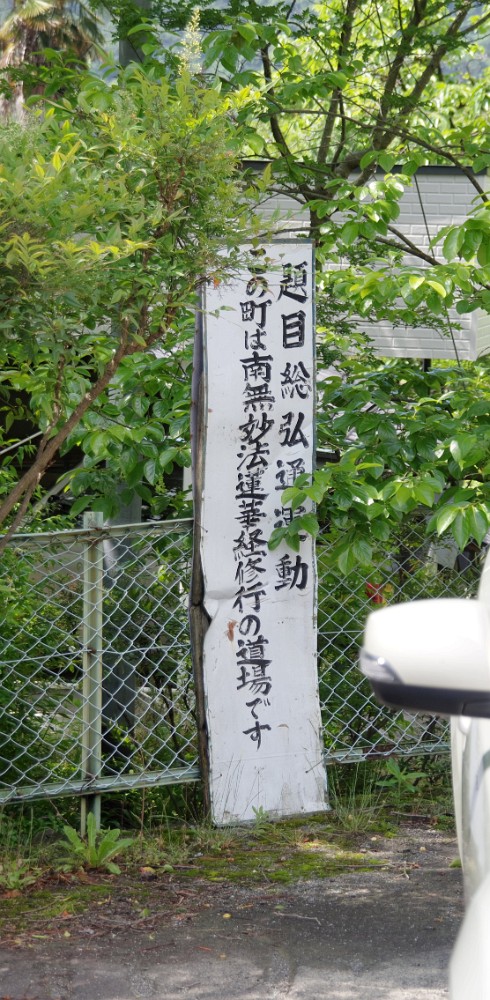 題目総弘通運動
この町は南無妙法蓮華経修行の道場です